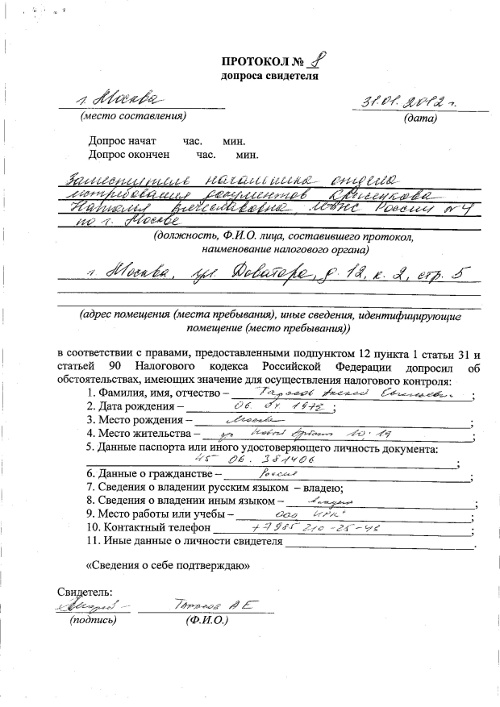 ПРОТОКОЛ № 8
допроса свидетеля
г. Москва 31.01.2012 г.
(место составления) (дата)
Допрос начат час. мин.
Допрос окончен час. мин.
Заместитель начальника отдела
истребования документов
Наталья Вячеславовна, МИФНС России №4
по г. Москве
(должность, Ф.И.О. лица, составившего протокол,
наименование налогового органа)
г. Москва, ул Доватора, д. 12, к. 2, стр. 5
(адрес помещения (места пребывания), иные сведения, идентифицирующие
помещение (место пребывания))
в соответствии с правами, предоставленными подпунктом 12 пункта 1 статьи 31 и
статьей 90 Налогового кодекса Российской Федерации допросил об
обстоятельствах, имеющих значение для осуществления налогового контроля:
1. Фамилия, имя, отчество – Тарасов Алексей Евгеньевич ;
2. Дата рождения – 06 04 1972 ;
3. Место рождения – Москва ;
4. Место жительства – ул Новый Арбат 10-19
5. Данные паспорта или иного удостоверяющего личность документа:
45 06. 381406 ;
6. Данные о гражданстве – Россия ;
7. Сведения о владении русским языком – владею;
8. Сведения о владении иным языком – ;
9. Место работы или учебы – ООО ;
10. Контактный телефон +7 985 210-25-46 ;
11. Иные данные о личности свидетеля .
«Сведения о себе подтверждаю»
Свидетель:
Тарасов А Е
(подпись) (Ф.И.О.)